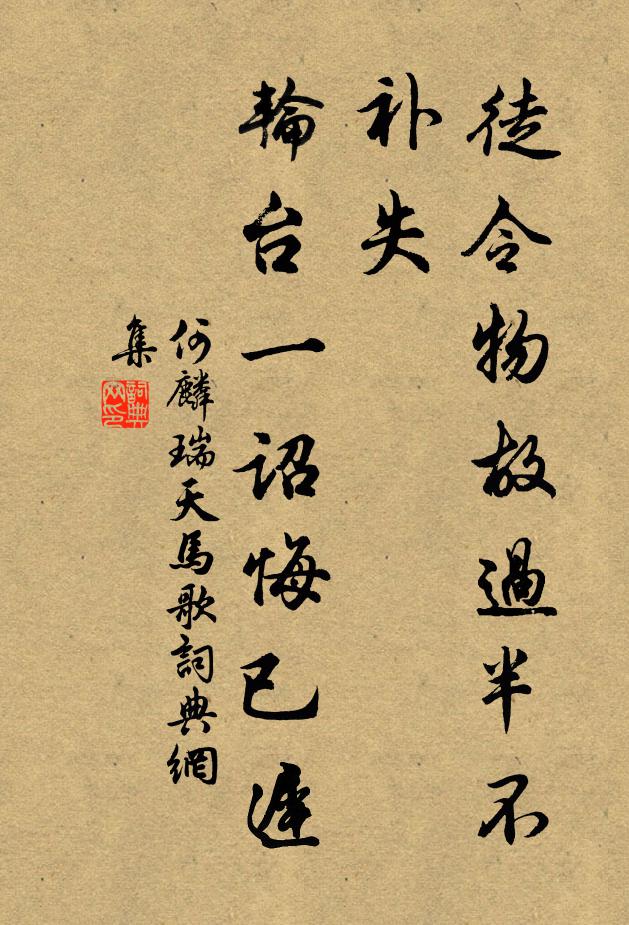 徒令物故過半不
补失
輪台一詔悔已遲
何麟瑞天馬歌詞典網
集
詞典
网印